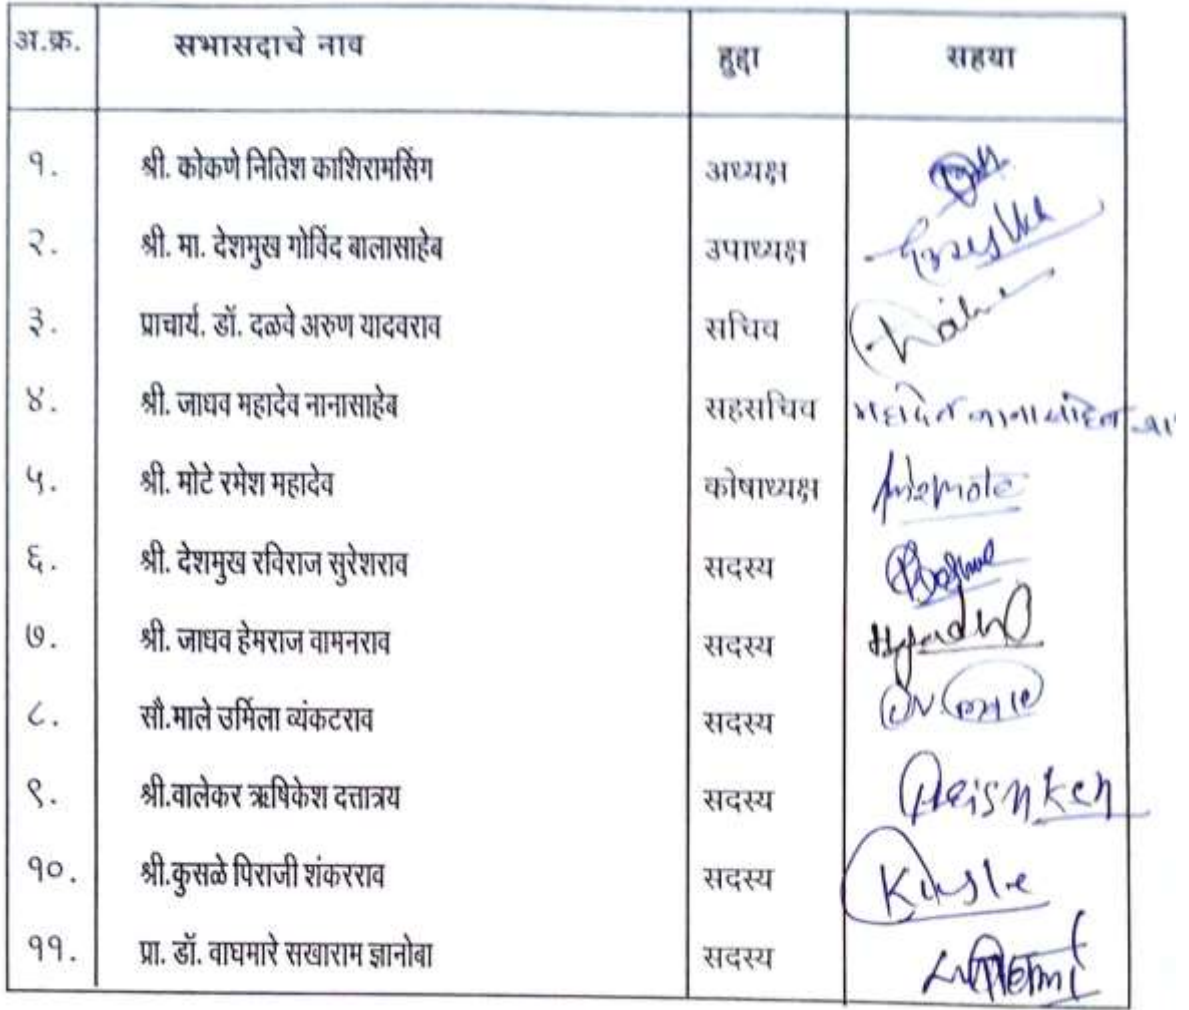 अ.क्र. सभासदाचे नाव हुद्दा सहया
१. श्री. कोकणे नितिश काशिरामसिंग अध्यक्ष
२. श्री. मा. देशमुख गोविंद बालासाहेब उपाध्यक्ष
३. प्राचार्य. डॉ. दळवे अरुण यादवराव सचिव
४. श्री. जाधव महादेव नानासाहेब सहसचिव
५. श्री. मोटे रमेश महादेव कोषाध्यक्ष
६. श्री. देशमुख रविराज सुरेशराव सदस्य
७. श्री. जाधव हेमराज वामनराव सदस्य
८. सौ.माले उर्मिला व्यंकटराव सदस्य
९. श्री.वालेकर ऋषिकेश दत्तात्रय सदस्य
१०. श्री.कुसळे पिराजी शंकरराव सदस्य Kusle
११. प्रा. डॉ. वाघमारे सखाराम ज्ञानोबा सदस्य